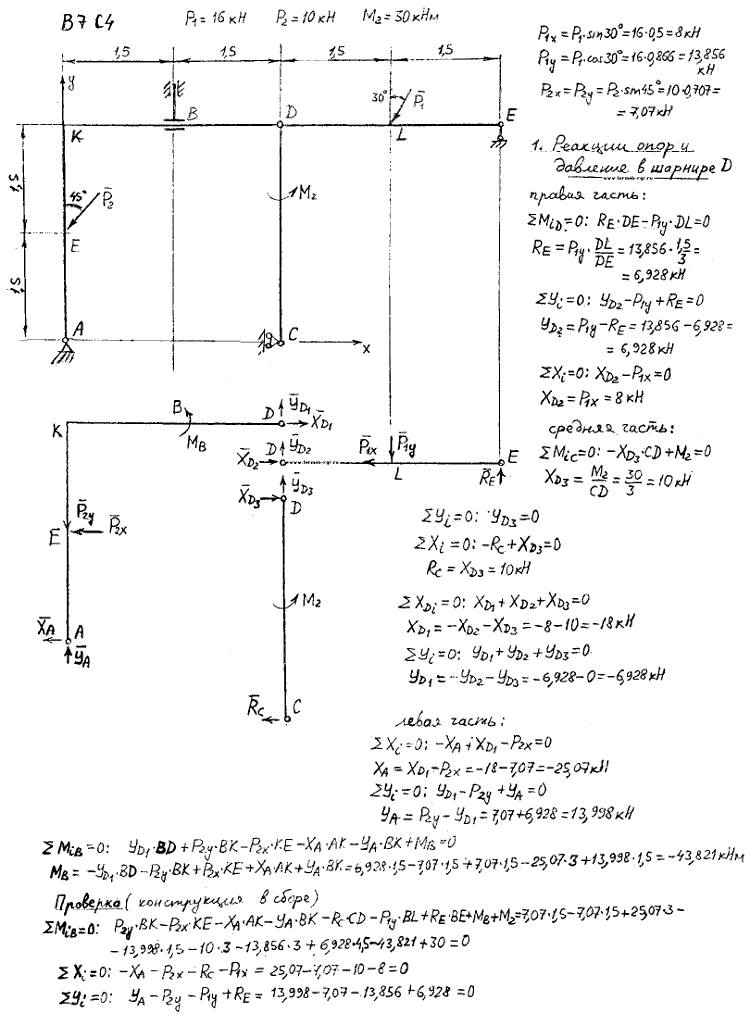 B7 C4
P₁=16кН P₂=10кН M₂=30кНм
1,5 1,5 1,5 1,5
y
30° P̄₁
K B D L E
1,5
45° P̄₂
M₂
E
1,5
A C x
P₁ₓ=P₁·sin30°=16·0,5=8кН
P₁y=P₁·cos30°=16·0,866=13,856
кН
P₂ₓ=P₂y=P₂·sin45°=10·0,707=
=7,07кН
1. Реакции опор и
давление в шарнире D
правая часть:
ΣMiD=0: RE·DE−P₁y·DL=0
RE=P₁y·DL/DE=13,856·1,5/3=
=6,928кН
ΣYi=0: YD2−P₁y+RE=0
YD2=P₁y−RE=13,856−6,928=
=6,928кН
ΣXi=0: XD2−P₁ₓ=0
XD2=P₁ₓ=8кН
средняя часть:
ΣMiC=0: −XD3·CD+M₂=0
XD3=M₂/CD=30/3=10кН
B D ȲD1 X̄D1
K M̄B
X̄D2 D ȲD2 P̄₁ₓ P̄₁y L E
X̄D3 ȲD3 D R̄E
P̄₂y
Ē P̄₂ₓ
M₂
X̄A A
ȲA
R̄C C
ΣYi=0: YD3=0
ΣXi=0: −RC+XD3=0
RC=XD3=10кН
ΣXDi=0: XD1+XD2+XD3=0
XD1=−XD2−XD3=−8−10=−18кН
ΣYi=0: YD1+YD2+YD3=0
YD1=−YD2−YD3=−6,928−0=−6,928кН
левая часть:
ΣXi=0: −XA+XD1−P₂ₓ=0
XA=XD1−P₂ₓ=−18−7,07=−25,07кН
ΣYi=0: YD1−P₂y+YA=0
YA=P₂y−YD1=7,07+6,928=13,998кН
ΣMiB=0: YD1·BD+P₂y·BK−P₂ₓ·KE−XA·AK−YA·BK+MB=0
MB=−YD1·BD−P₂y·BK+P₂ₓ·KE+XA·AK+YA·BK=6,928·1,5−7,07·1,5+7,07·1,5−25,07·3+13,998·1,5=−43,821кНм
Проверка (конструкция в сборе)
ΣMiB=0: P₂y·BK−P₂ₓ·KE−XA·AK−YA·BK−RC·CD−P₁y·BL+RE·BE+MB+M₂=7,07·1,5−7,07·1,5+25,07·3−
−13,998·1,5−10·3−13,856·3+6,928·4,5−43,821+30=0
ΣXi=0: −XA−P₂ₓ−RC−P₁ₓ=25,07−7,07−10−8=0
ΣYi=0: YA−P₂y−P₁y+RE=13,998−7,07−13,856+6,928=0